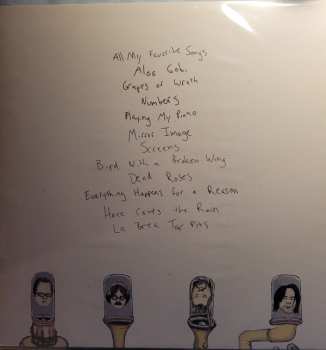 All My Favorite Songs
Aloo Gobi
Grapes of Wrath
Numbers
Playing My Piano
Mirror Image
Screens
Bird With a Broken Wing
Dead Roses
Everything Happens for a Reason
Here Comes the Rain
La Brea Tar Pits